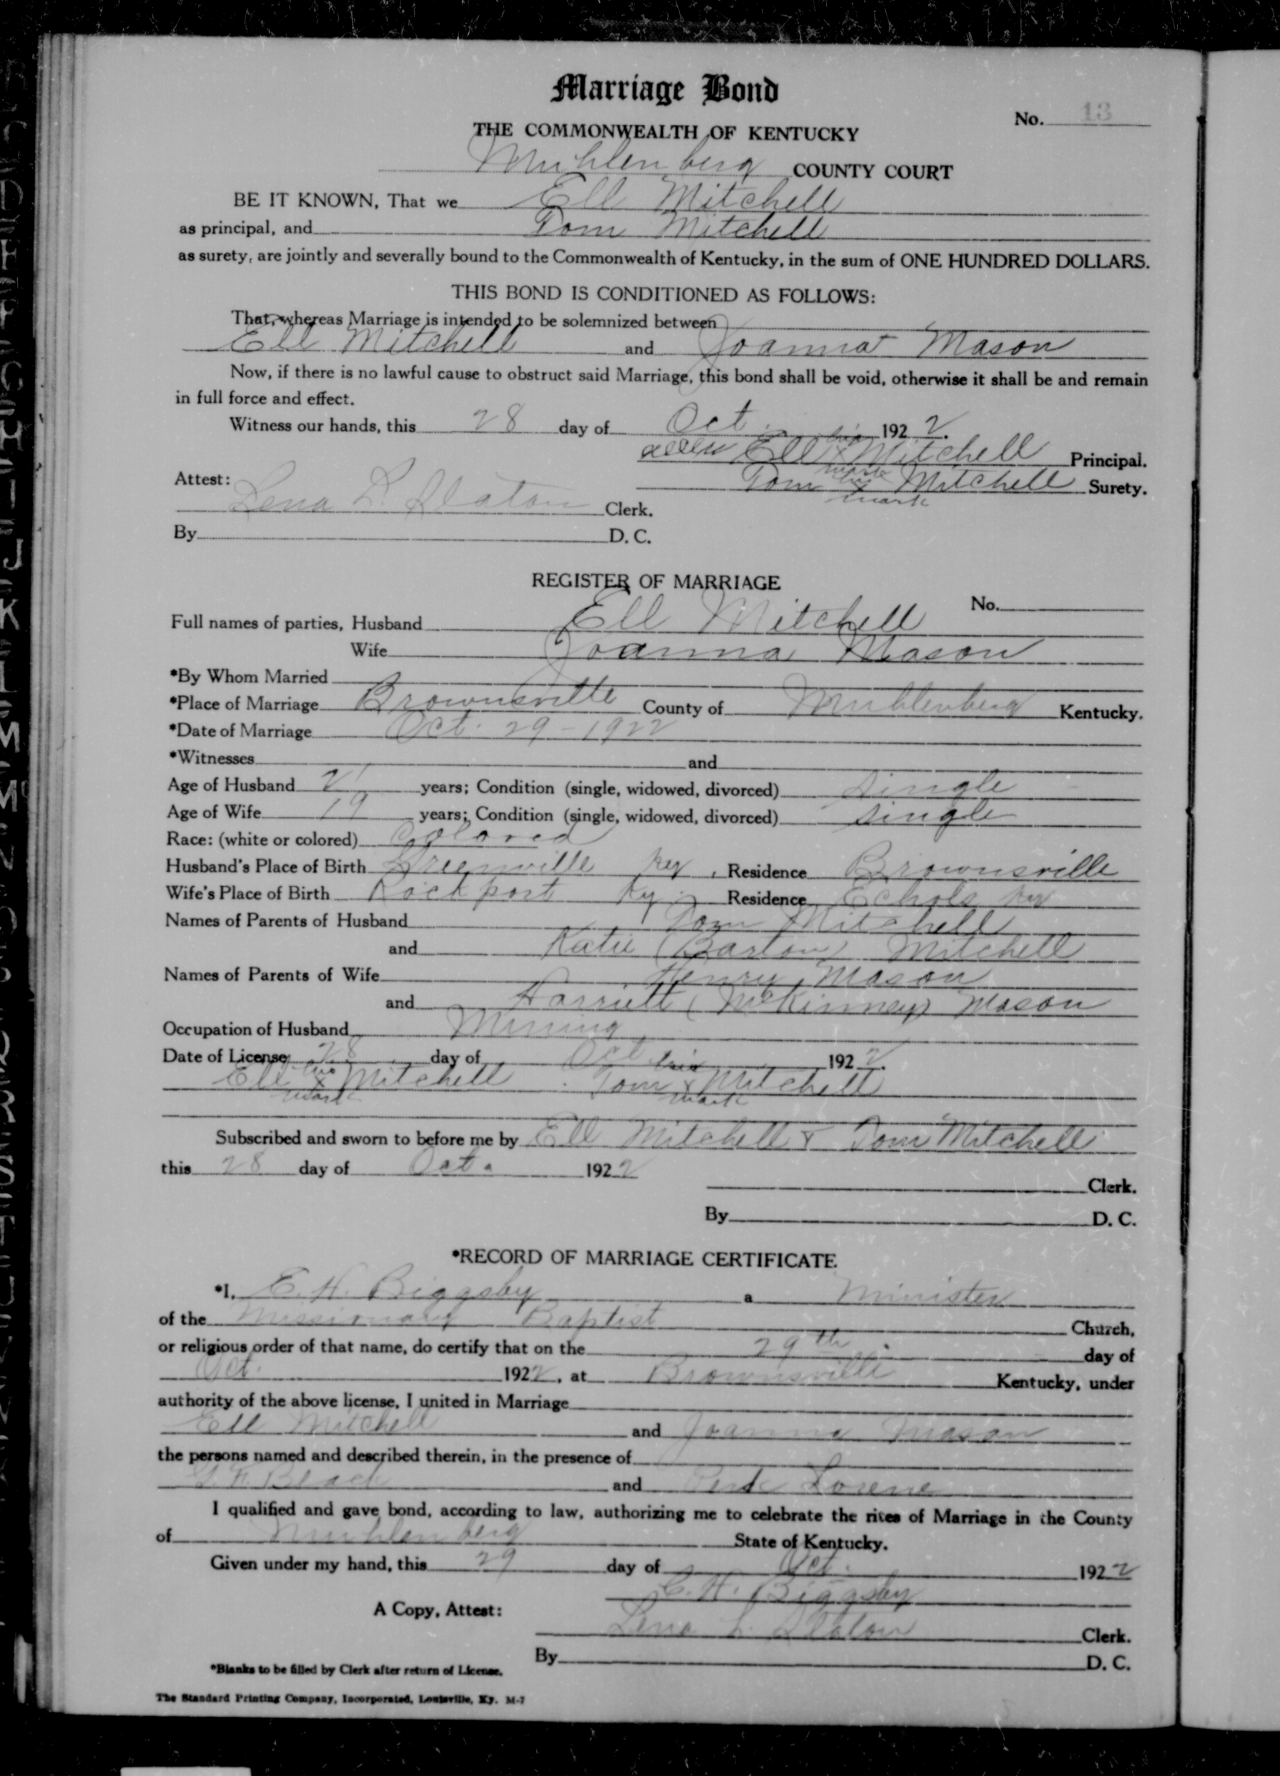 Marriage Bond
No. 13
THE COMMONWEALTH OF KENTUCKY
Muhlenberg COUNTY COURT
BE IT KNOWN, That we Ell Mitchell
as principal, and Tom Mitchell
as surety, are jointly and severally bound to the Commonwealth of Kentucky, in the sum of ONE HUNDRED DOLLARS.
THIS BOND IS CONDITIONED AS FOLLOWS:
That, whereas Marriage is intended to be solemnized between
Ell Mitchell and Joanna Mason
Now, if there is no lawful cause to obstruct said Marriage, this bond shall be void, otherwise it shall be and remain
in full force and effect.
Witness our hands, this 28 day of Oct. 1922.
Ell his X mark Mitchell Principal.
Attest: Tom his X mark Mitchell Surety.
Lena L. Slaton Clerk.
By D. C.
REGISTER OF MARRIAGE
No.
Full names of parties, Husband Ell Mitchell
Wife Joanna Mason
*By Whom Married
*Place of Marriage Brownsville County of Muhlenberg Kentucky.
*Date of Marriage Oct. 29 - 1922
*Witnesses and
Age of Husband 21 years; Condition (single, widowed, divorced) Single
Age of Wife 19 years; Condition (single, widowed, divorced) Single
Race: (white or colored) Colored
Husband's Place of Birth Greenville Ky. Residence Brownsville
Wife's Place of Birth Rockport Ky. Residence Echols Ky
Names of Parents of Husband Tom Mitchell
and Katie (Barlow) Mitchell
Names of Parents of Wife Henry Mason
and Harriett (McKinney) Mason
Occupation of Husband Mining
Date of License 28 day of Oct 1922.
Ell his X mark Mitchell Tom his X mark Mitchell
Subscribed and sworn to before me by Ell Mitchell & Tom Mitchell
this 28 day of Oct. 1922
Clerk.
By D. C.
*RECORD OF MARRIAGE CERTIFICATE
*I, E. H. Biggsby a Minister
of the Missionary Baptist Church,
or religious order of that name, do certify that on the 29th day of
Oct. 1922, at Brownsville Kentucky, under
authority of the above license, I united in Marriage
Ell Mitchell and Joanna Mason
the persons named and described therein, in the presence of
and Lorene
I qualified and gave bond, according to law, authorizing me to celebrate the rites of Marriage in the County
of Muhlenberg State of Kentucky.
Given under my hand, this 29 day of Oct. 1922
E. H. Biggsby
A Copy, Attest:
Lena L. Slaton Clerk.
By D. C.
*Blanks to be filled by Clerk after return of License.
The Standard Printing Company, Incorporated, Louisville, Ky. M-7